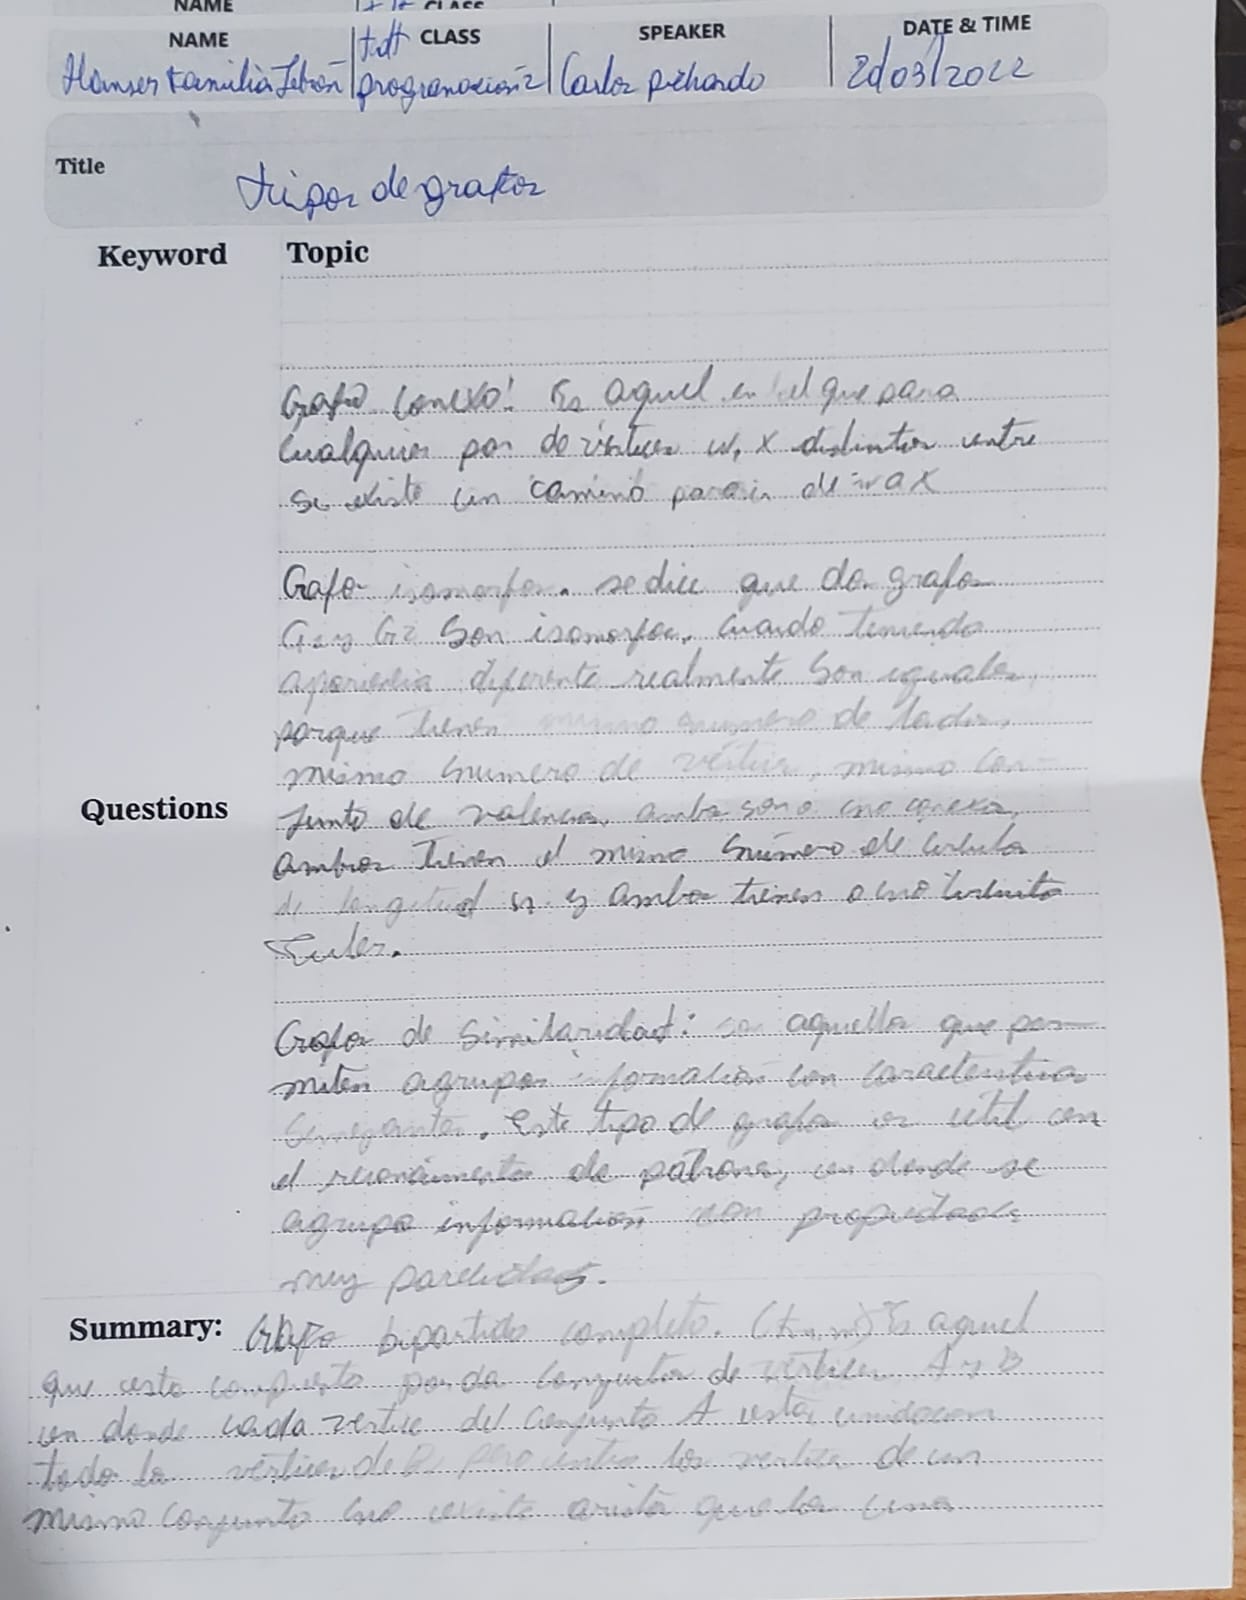 NAME CLASS
NAME CLASS SPEAKER DATE & TIME
Hanser Familia Lebrón programación 2 Carlos pichardo 2d/03/2022
Title
tipos de grafos
Keyword Topic
Grafo Conexo: Es aquel en el que para
Cualquier par de vértices w, x distintos entre
si existe un camino para ir de w a x
Grafos isomorfos. se dice que dos grafos
G1 y G2 Son isomorfos, cuando teniendo
apariencia diferente realmente Son iguales,
porque tienen mismo numero de lados,
mismo numero de vértices, mismo con-
Questions
junto de valencias, ambos son o no conexos,
ambos tienen el mismo número de circuitos
de longitud n y ambos tienen o no Circuito
Euler.
Grafos de Similaridad: son aquellos que per-
miten agrupar información con características
Semejantes. Este tipo de grafos es util en
el reconocimiento de patrones, en donde se
agrupa información con propiedades
muy parecidas.
Summary: Grafo bipartido completo. (Kn,m) Es aquel
que esta compuesto por dos Conjuntos de vértices A y B
en donde cada vertice del Conjunto A esta unido con
todos los vértices de B, pero entre los vertices de un
mismo Conjunto no existe arista que los una